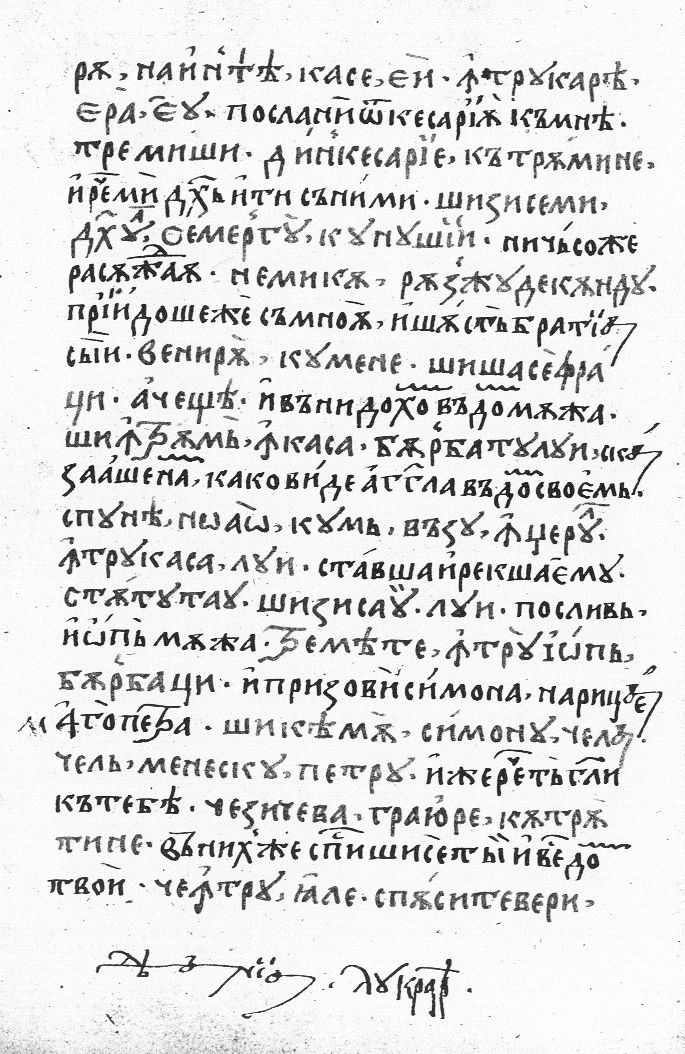 рѫ, наи́нтѣ, касе, ей · ꙟтрꙋкарѣ,
ера̀, еꙋ, посланиѿкесарїѧ̀ къмнѣ ·
тремиши · ди́нкесарїе, кътрѫмине,
и҆рече́ми дх҃ъ и҆ти съними · шизисеми,
дх҃ꙋл, ѳемергтꙋ, кꙋнꙋшїи · ничьсоже
расѫжаѧ · немикѫ, рѫзжꙋдекѫндꙋ.
прїи́дошеже съмноѫ, и҆шѧ́стъбратїꙋ
сы́и · венирѫ, кꙋмене · шишасефра́
ци · а҆чещѣ · и҆вънидохо въдомѫжа.
шиꙟтрѫмь, ꙟкаса · бѫрбатꙋлꙋи, ска
заа҆шена, каково ви́де а҆гг҃ла въдо своемь.
спꙋнѣ, ноаѡ, кꙋмь, въꙁꙋ, ꙟџерꙋл.
ꙟтрꙋкаса, лꙋи · ста́вшаи҆рекшаемꙋ.
ста́тꙋтаꙋ · шизисаꙋ · лꙋи · посливь,
и҆ѡ҆пь̀ мѫжа · тремѣте, ꙟтрꙋі҆ѡ́пь,
бѫрбаци · и҆призови сѵ́мона, нарицае
маго петра · шикѣмѫ, си́монꙋ, чело
чель, менескꙋ, петрꙋ · и҆жеречеть гл҃и
кътебѣ · чезичева, граю́ре, кѫтрѫ
тине · вънихже сп҃сишисеты́ и҆веⷭ҇ до
твой · чеꙟтрꙋ, ꙗ҆ле · спѫситевери,
лꙋкрарѣ.